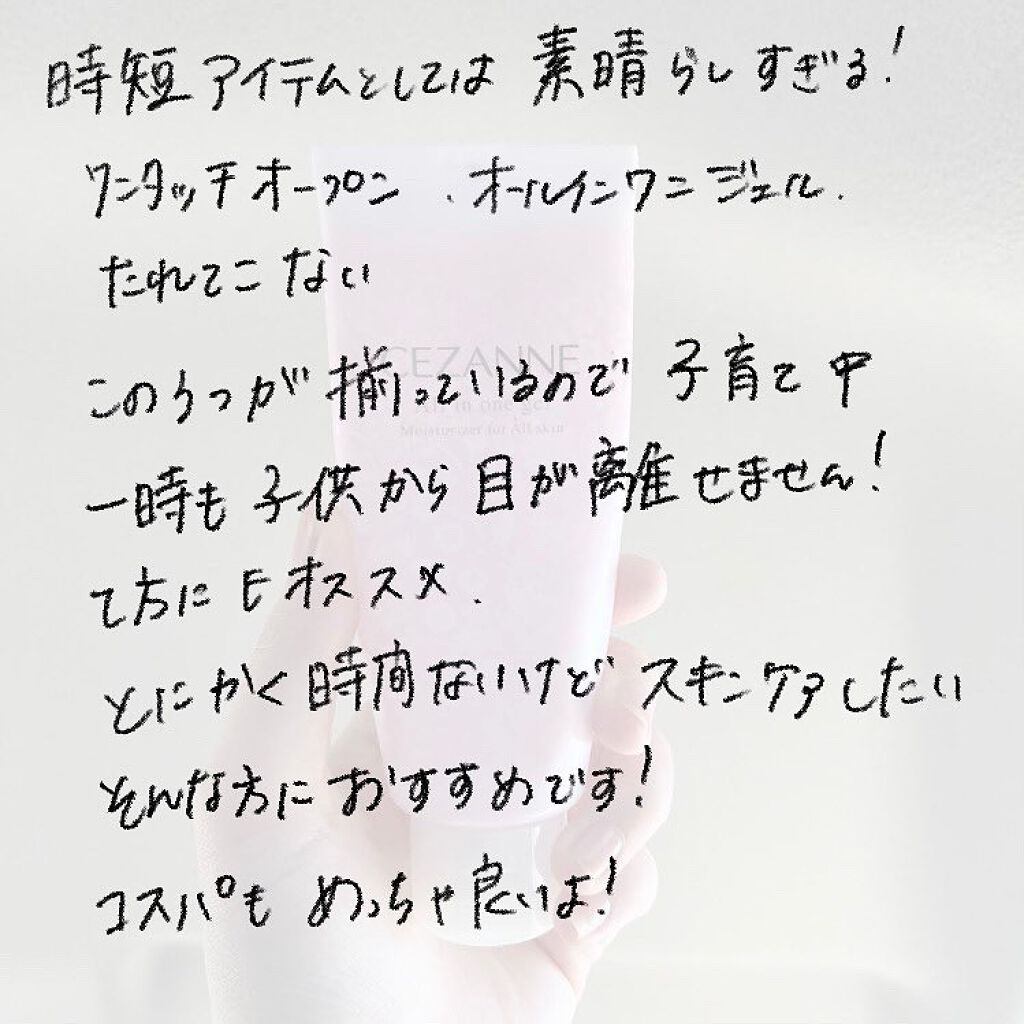 時短アイテムとしては 素晴らしすぎる!
ワンタッチオープン、オールインワンジェル、
たれてこない
この3つが揃っているので 子育て中
一時も子供から目が離せません!
て方にもオススメ.
とにかく時間ないけど スキンケアしたい
そんな方に おすすめです!
コスパも めっちゃ良いよ!
CEZANNE
All in one gel
Moisturizer for All skin